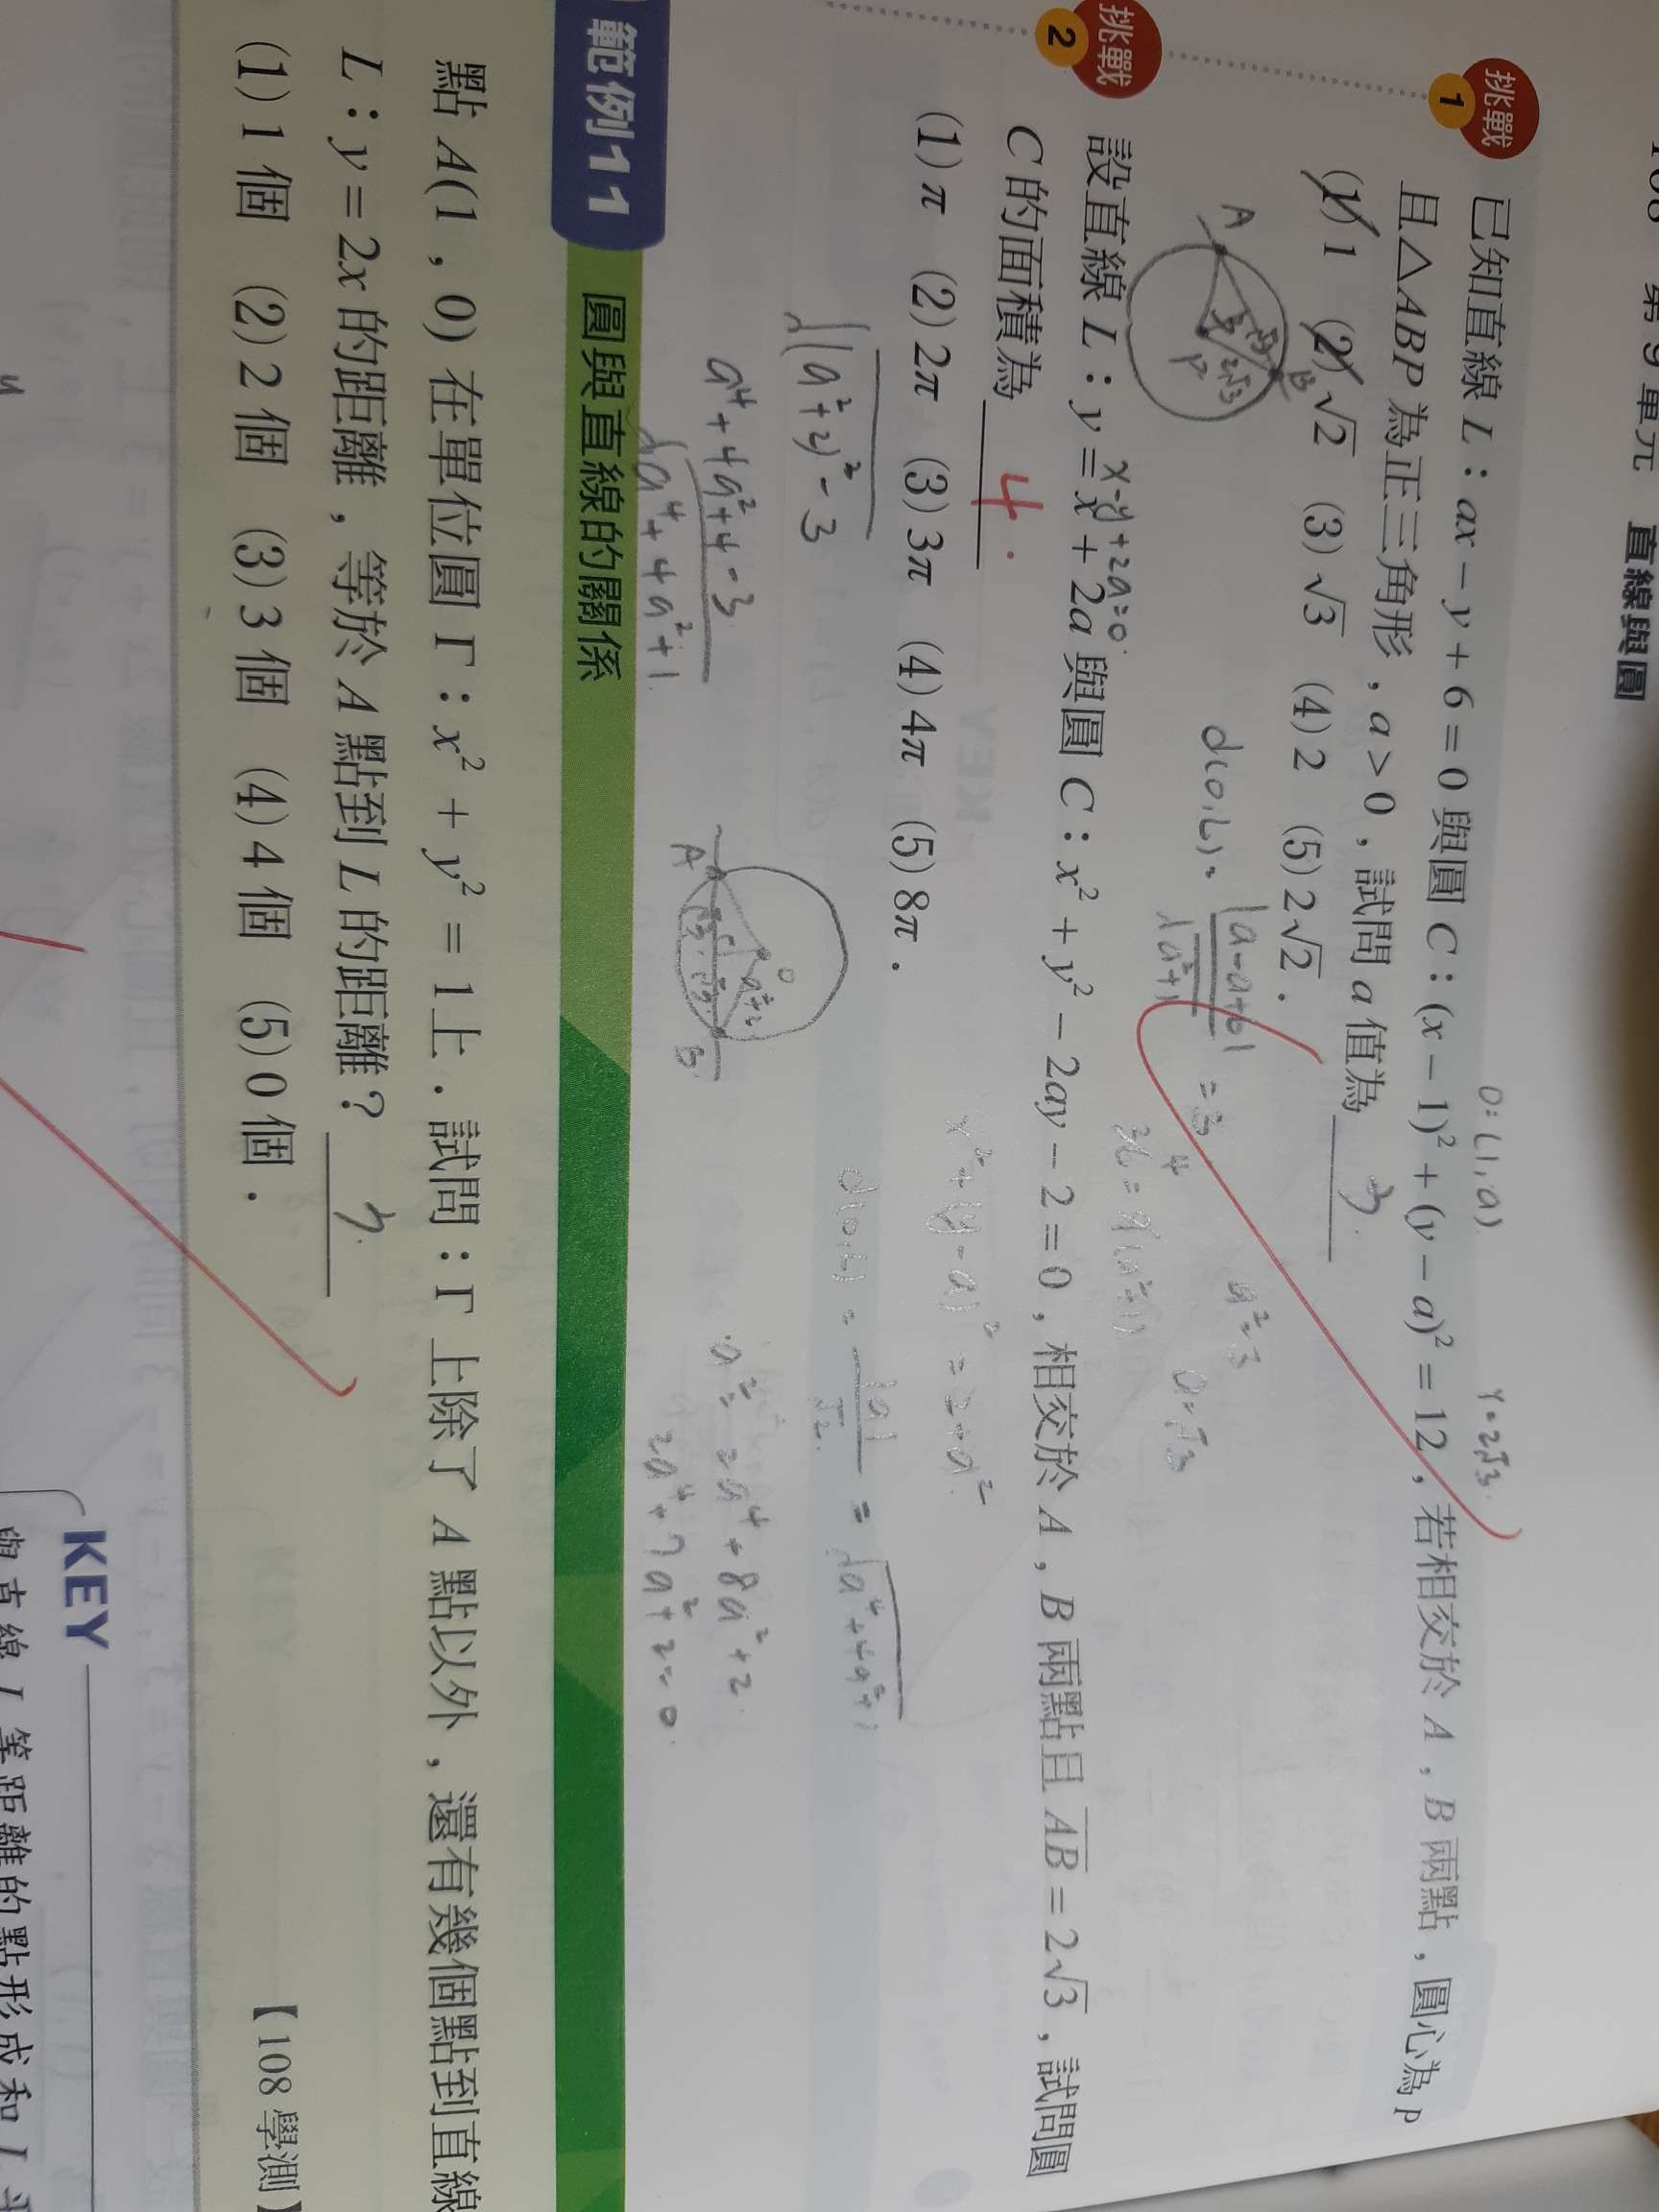 第9單元 直線與圓
O:(1,a) r=2√3
挑戰 1 已知直線 L:ax-y+6=0 與圓 C:(x-1)²+(y-a)²=12,若相交於 A,B 兩點,圓心為 P
且△ABP 為正三角形,a>0,試問 a 值為 3.
(1)1 (2)√2 (3)√3 (4)2 (5)2√2.
A B P 2√3
d(O,L)= |a-a+6| / √a²+1 = 3
36=9(a²+1)
a²=3
a=√3
x-y+2a=0
挑戰 2 設直線 L:y=x+2a 與圓 C:x²+y²-2ay-2=0,相交於 A,B 兩點且 AB=2√3,試問圓
C 的面積為 4.
(1)π (2)2π (3)3π (4)4π (5)8π.
x²+(y-a)²=2+a²
d(O,L)= |a| / √2 = √a⁴+4a²+1
√(a²+2)²-3
a⁴+4a²+4-3
√a⁴+4a²+1
A O B a²+2 √3 √3
a²=2a⁴+8a²+2
2a⁴+7a²+2=0
範例11 圓與直線的關係
點 A(1,0) 在單位圓 Γ:x²+y²=1上.試問:Γ 上除了 A 點以外,還有幾個點到直線
L:y=2x 的距離,等於 A 點到 L 的距離?
(1)1個 (2)2個 (3)3個 (4)4個 (5)0個.
【108學測】
KEY
等距離的點形成和